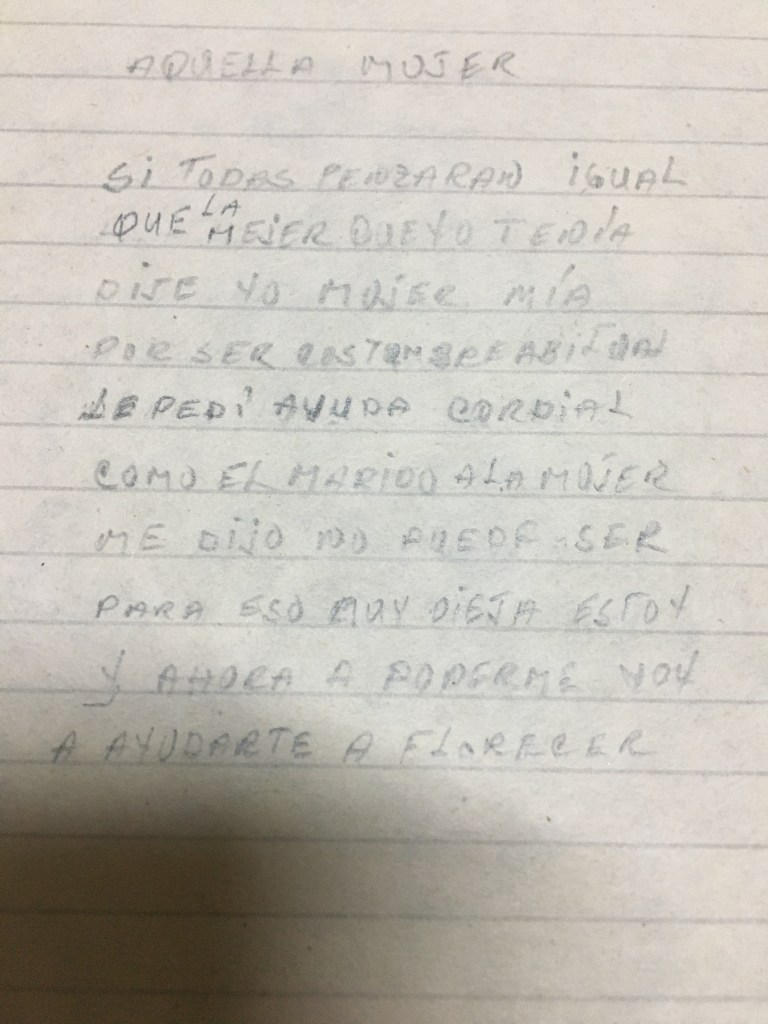 AQUELLA MUJER
SI TODAS PENZARAN IGUAL
QUE LA MEJER QUE YO TENÍA
DIJE YO MUJER MÍA
POR SER COSTUMBRE ABITUAL
LE PEDÍ AYUDA CORDIAL
COMO EL MARIDO A LA MUJER
ME DIJO NO PUEDE SER
PARA ESO MUY VIEJA ESTOY
Y AHORA A PONERME VOY
A AYUDARTE A FLORECER